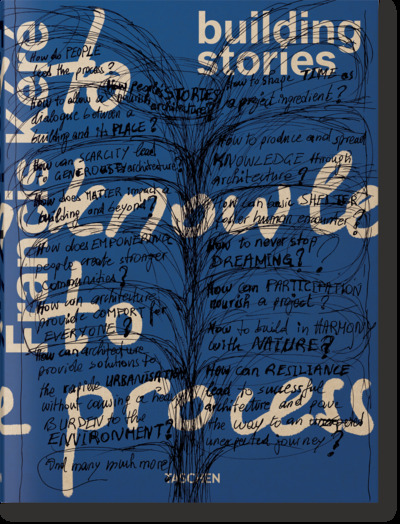 building
stories
Francis Kéré
How do PEOPLE
lead the process?
How people's STORIES
nourish architecture?
How to allow a
dialogue between a
building and its PLACE?
How can SCARCITY lead
to GENEROUS architecture?
How does MATTER impact a
building and beyond?
How does EMPOWERING
people create stronger
communities?
How can architecture
provide COMFORT for
EVERYONE?
How can architecture
provide solutions to
the rapid URBANISATION
without causing a heavy
BURDEN to the
ENVIRONMENT?
And many much more
How to shape TIME as
a project ingredient?
How to produce and spread
KNOWLEDGE through
architecture?
How can basic SHELTER
offer human encounter?
How to never stop
DREAMING?
How can PARTICIPATION
nourish a project?
How to build in HARMONY
with NATURE?
How can RESILIANCE
lead to successful
architecture and pave
the way to an
unexpected journey?
to
knowle
to
process
TASCHEN